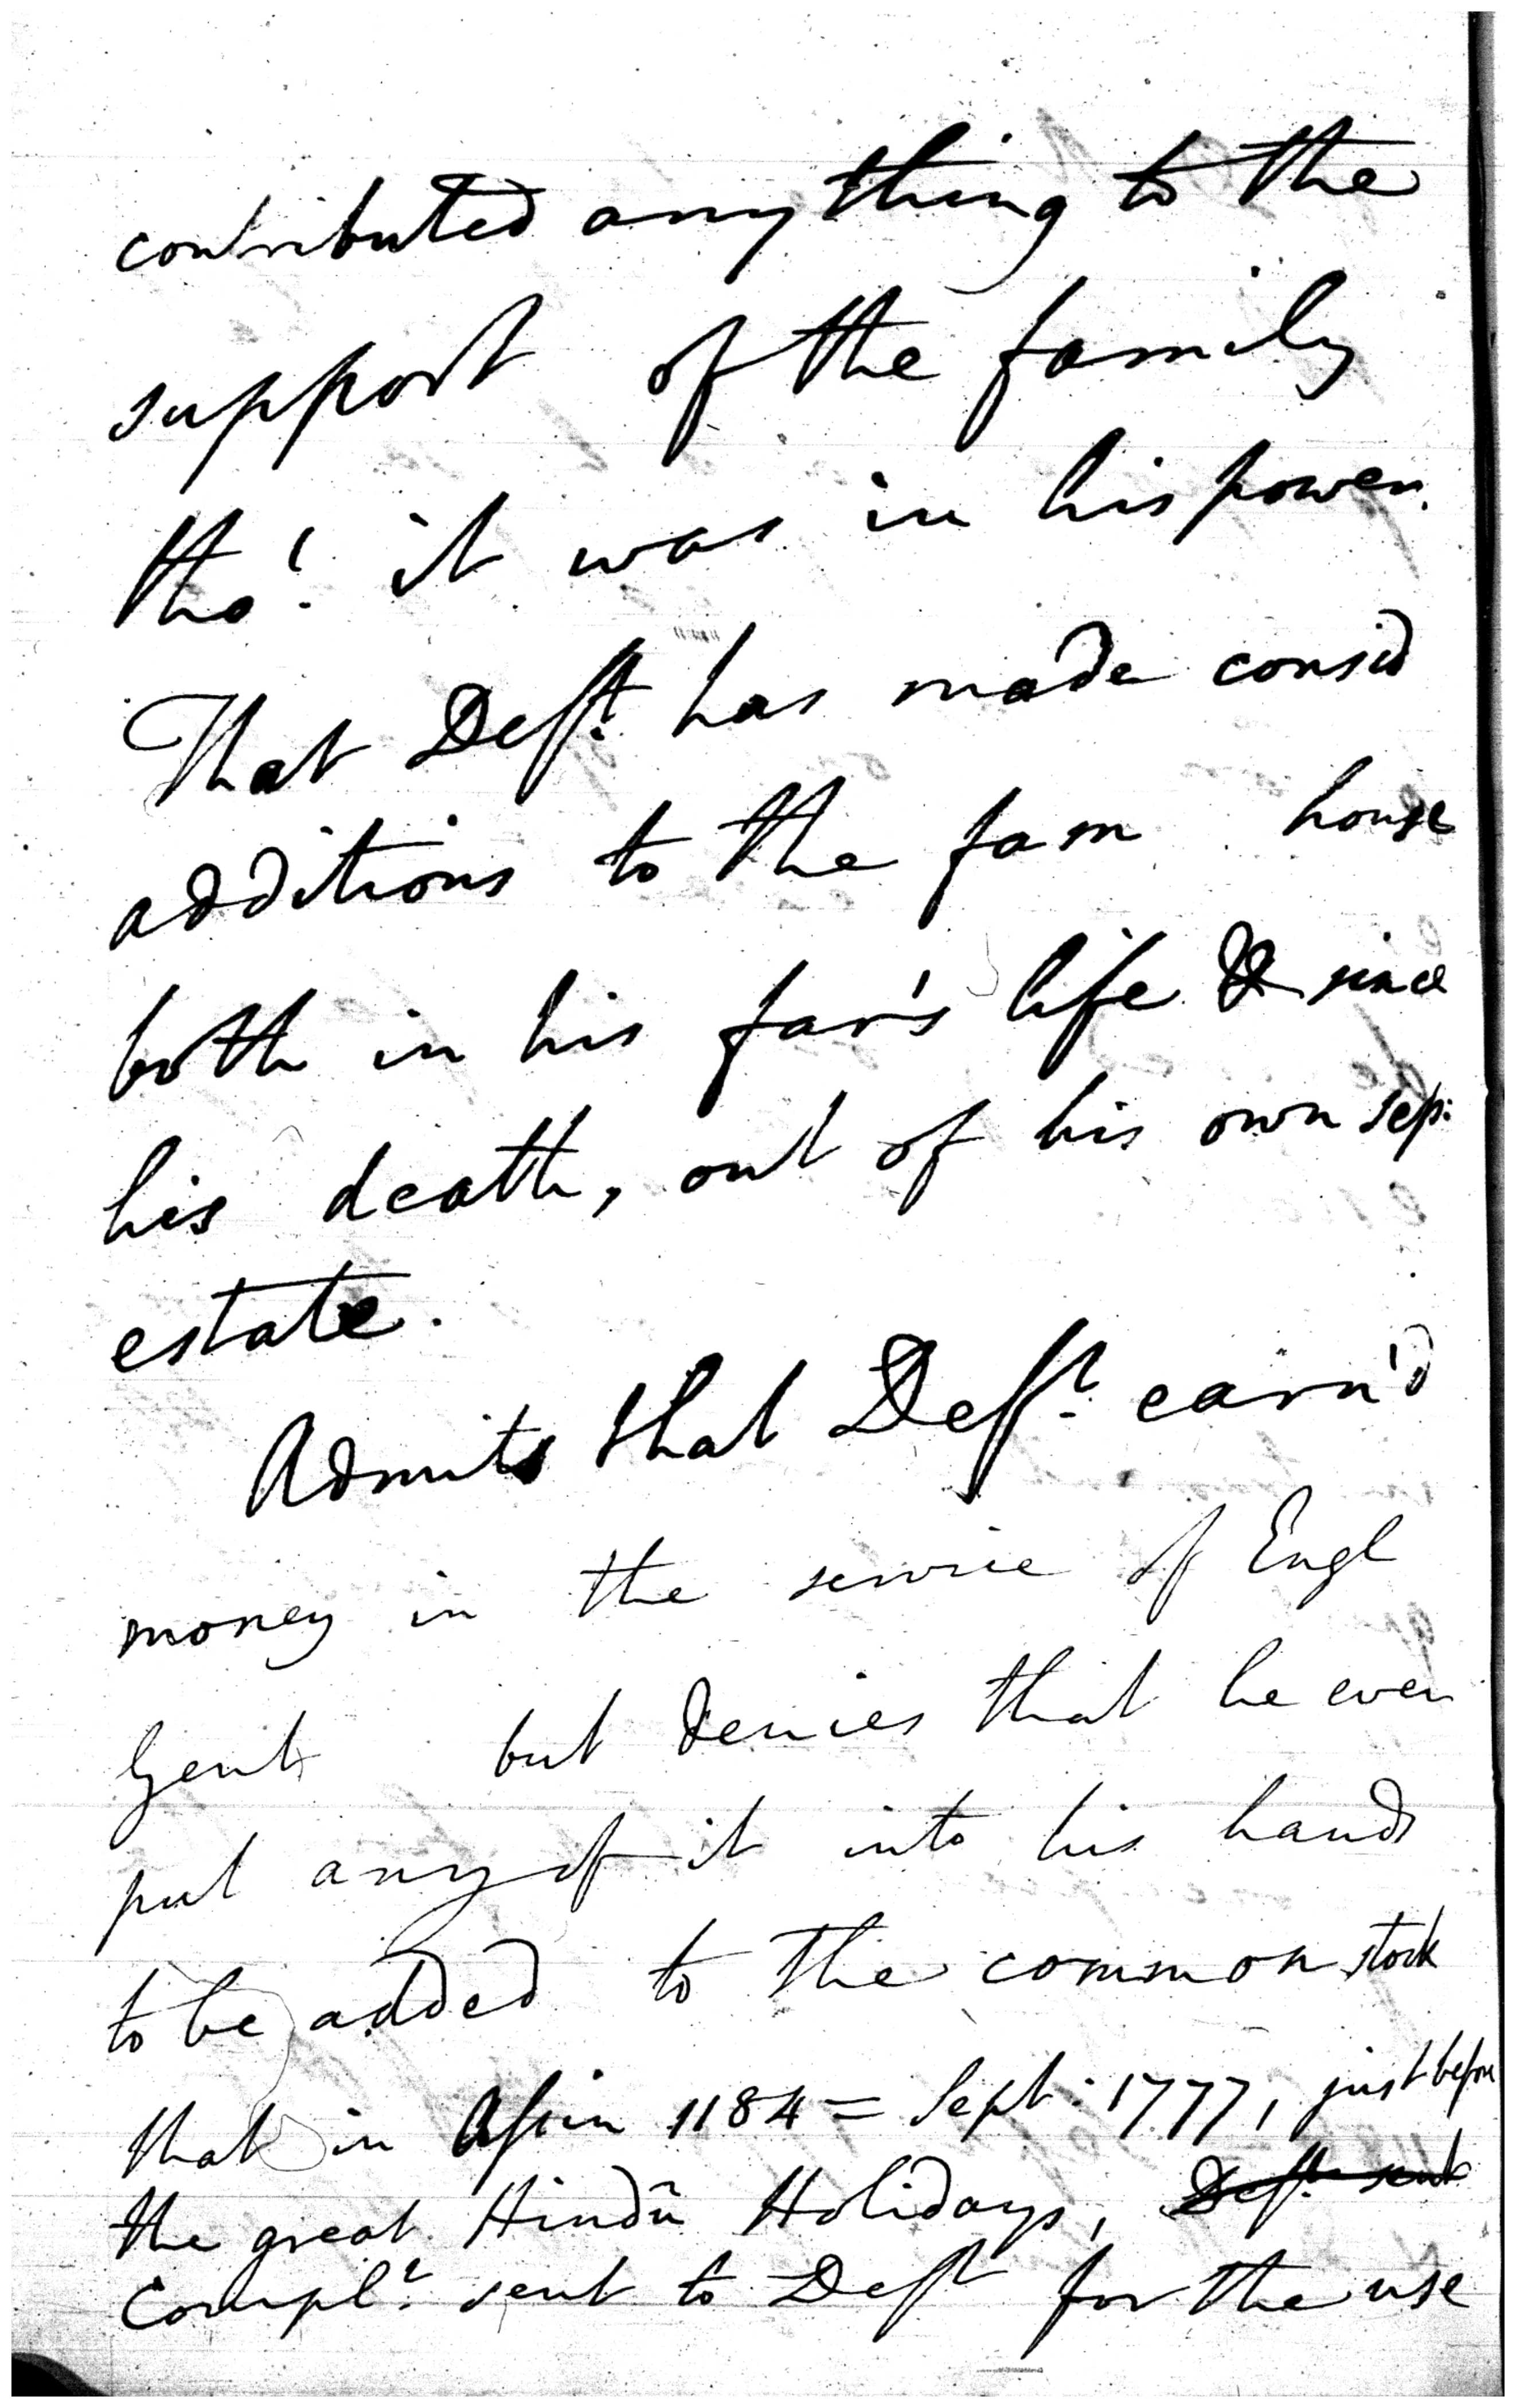 contributed any thing to the
support of the family
tho' it was in his power.
That Deft. has made consid
additions to the fam house
both in his far's life & since
his death, out of his own sep:
estate.
Admits that Deft. earn'd
money in the service of Engl
Gent but denies that he ever
put any of it into his hands
to be added to the common stock
that in Assin 1184 = Sept: 1777, just before
the great Hindū Holidays, Deft. sent
Complt. sent to Deft for the use